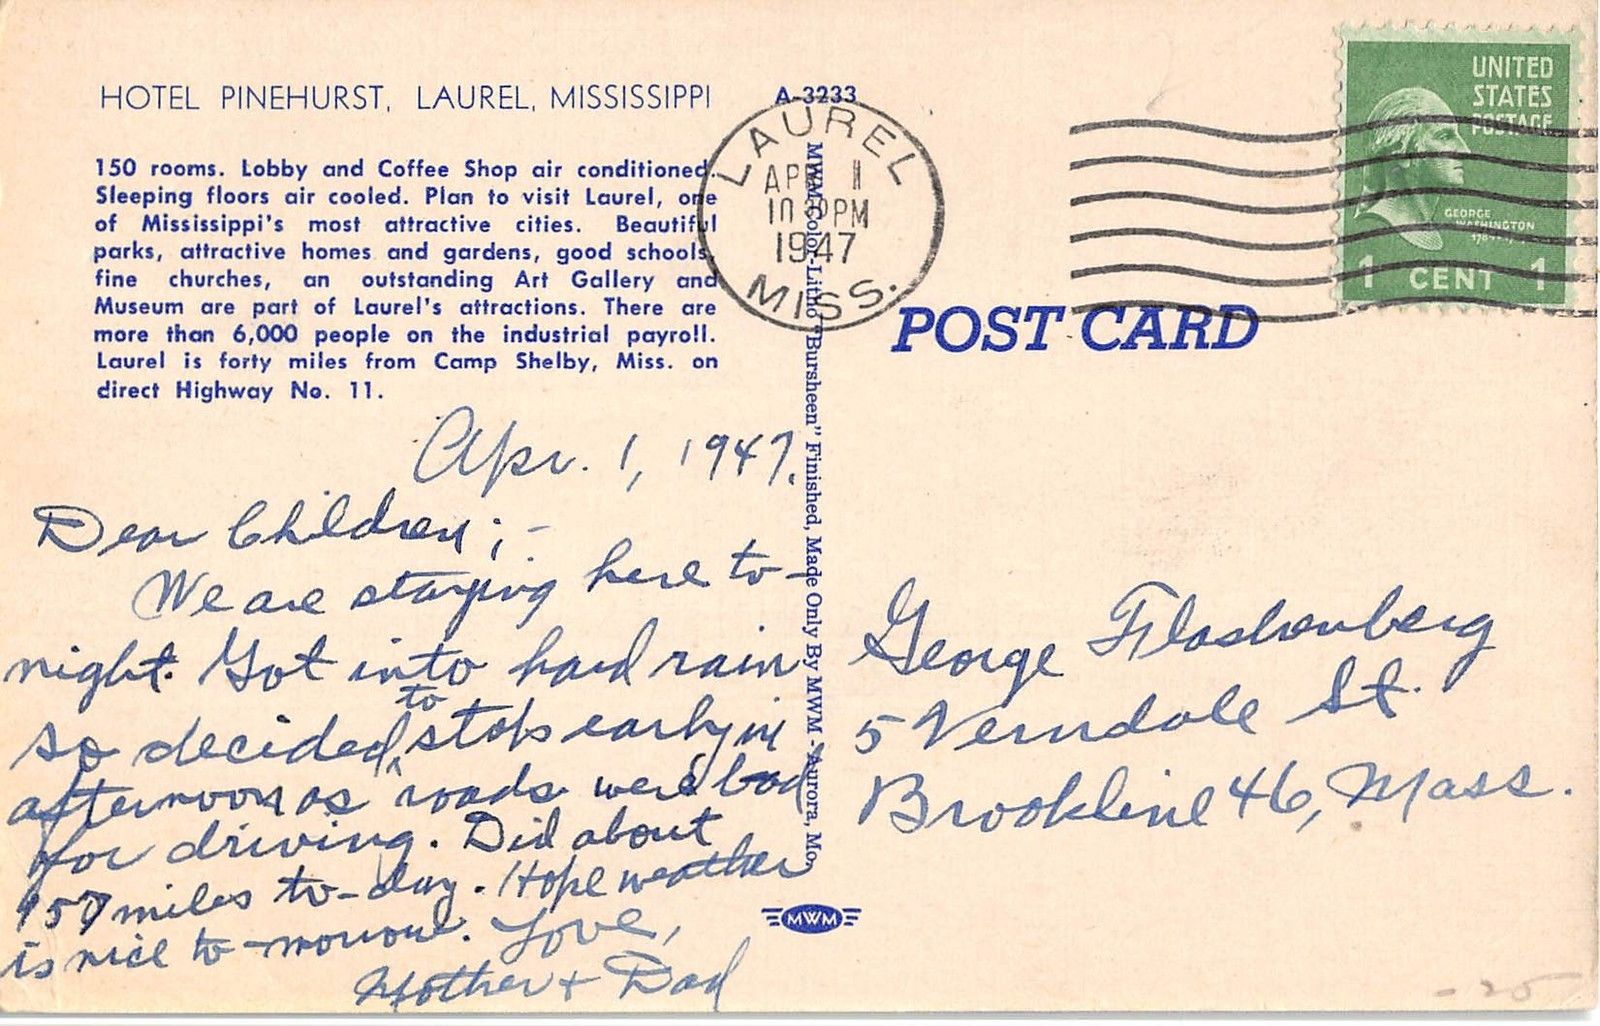 HOTEL PINEHURST, LAUREL, MISSISSIPPI
150 rooms. Lobby and Coffee Shop air conditioned.
Sleeping floors air cooled. Plan to visit Laurel, one
of Mississippi's most attractive cities. Beautiful
parks, attractive homes and gardens, good schools,
fine churches, an outstanding Art Gallery and
Museum are part of Laurel's attractions. There are
more than 6,000 people on the industrial payroll.
Laurel is forty miles from Camp Shelby, Miss. on
direct Highway No. 11.
Apr. 1, 1947.
Dear Children;-
We are staying here to-
night. Got into hard rain
so decided to stop early in
afternoon as roads were bad
for driving. Did about
miles to-day. Hope weather
is nice to-morrow. Love,
Mother + Dad
A-3233
MWM Color-Litho "Bursheen" Finished, Made Only By MWM - Aurora, Mo.
MWM
LAUREL
APR 1
PM
1947
MISS.
UNITED
STATES
POSTAGE
GEORGE
WASHINGTON
1 CENT 1
POST CARD
George
5 Verndale St.
Brookline 46, Mass.